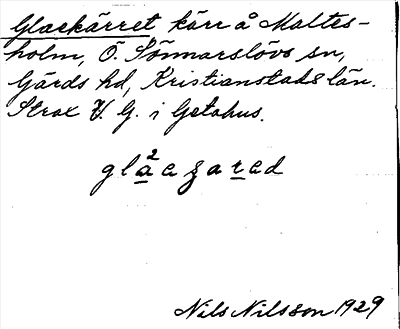 Glackärret kärr å Maltes-
holm, Ö. Sönnarslövs sn,
Gärds hd, Kristianstads län.
Strax V. G. i Getahus.
Nils Nilsson 1929